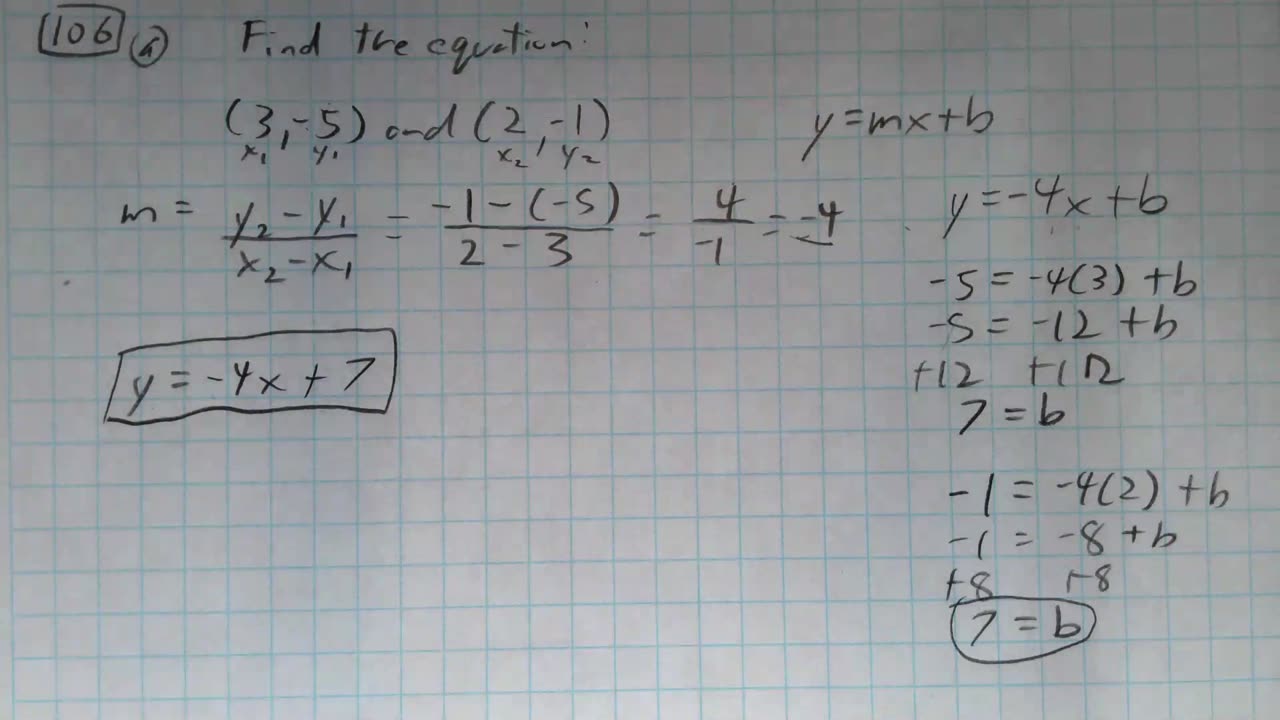 106 a) Find the equation:
(3,-5) and (2,-1)
x₁, y₁ x₂, y₂
m = y₂ - y₁ / x₂ - x₁ = -1 - (-5) / 2 - 3 = 4 / -1 = -4
y = -4x + 7
y = mx + b
y = -4x + b
-5 = -4(3) + b
-5 = -12 + b
+12 +12
7 = b
-1 = -4(2) + b
-1 = -8 + b
+8 +8
7 = b